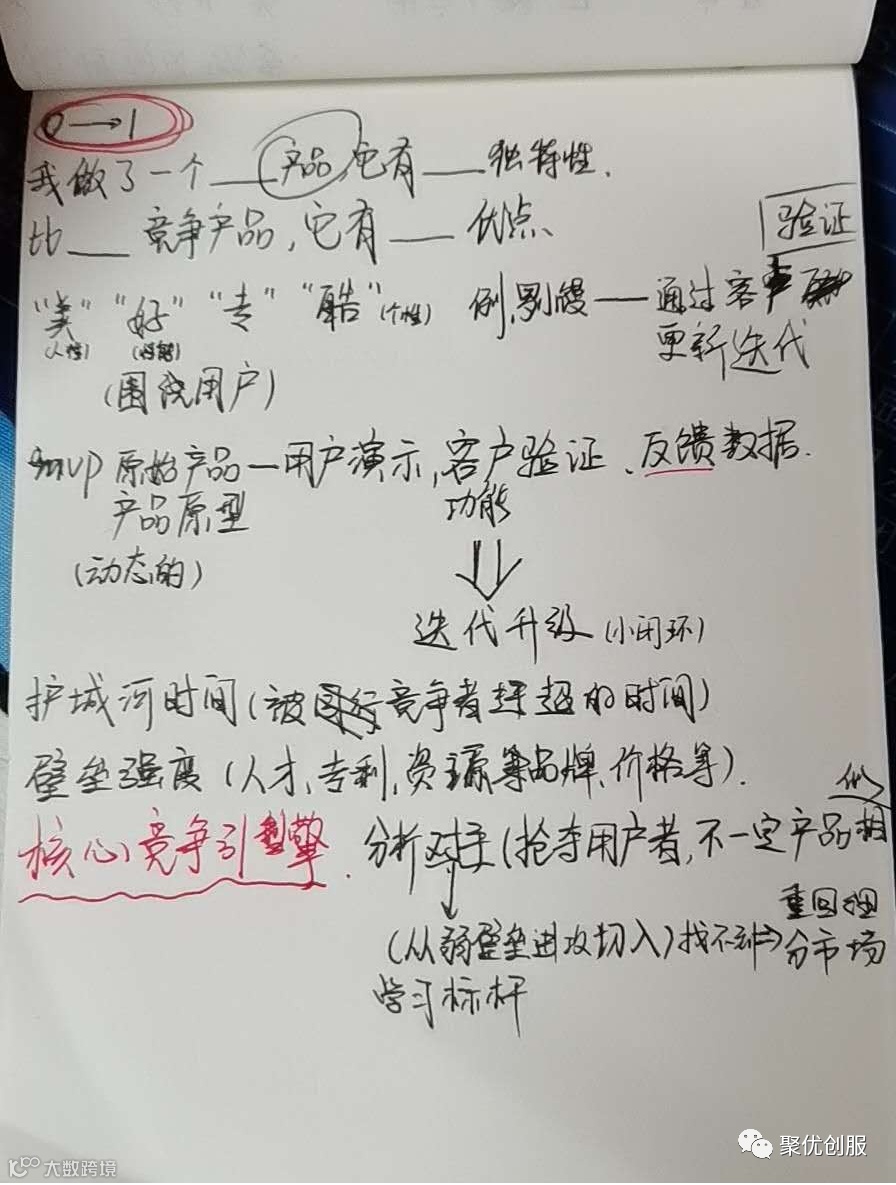 0→1
我做了一个___产品,它有___独特性.
比___竞争产品,它有___优点、
验证
"美" "好" "专" "酷"(个性) 例, ——通过客户
(人性) (性能) 更新迭代
(围绕用户)
mvp 原始产品—用户演示,客户验证、反馈数据.
产品原型 功能
(动态的)
迭代升级(小闭环)
护城河时间(被竞争者赶超的时间)
壁垒强度(人才,专利,资源等品牌、价格等).
核心竞争引擎. 分析对手(抢夺用户者,不一定产品相似)
(从弱壁垒进攻切入)找不到⇒重回细分市场
学习标杆
聚优创服
大数跨境